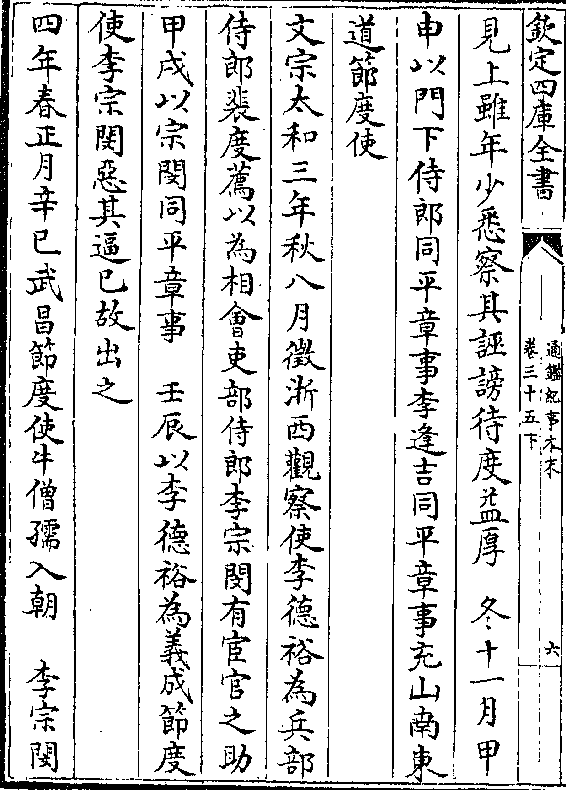 欽定四庫全書
通鑑紀事本末
卷三十五下
六
見上雖年少悉察其誣謗待度益厚　冬十一月甲
申以門下侍郎同平章事李逢吉同平章事充山南東
道節度使
文宗太和三年秋八月徵浙西觀察使李德裕為兵部
侍郎裴度薦以為相會吏部侍郎李宗閔有宦官之助
甲戌以宗閔同平章事　壬辰以李德裕為義成節度
使李宗閔惡其逼已故出之
四年春正月辛巳武昌節度使牛僧孺入朝　李宗閔